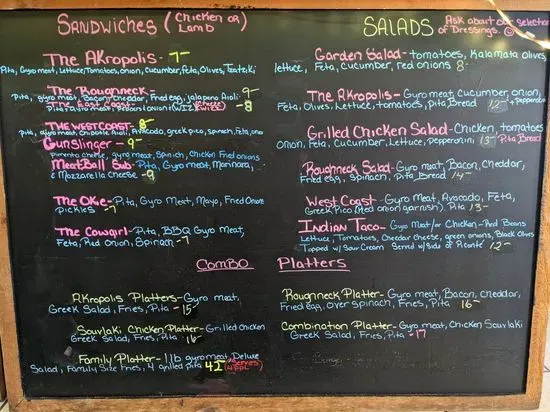 Sandwiches (Chicken or) Lamb
The AKropolis - 7-
Pita, Gyro meat, Lettuce, Tomatoes, onion, Cucumber, Feta, Olives, Tzatziki
The Roughneck - 9
Pita, gyro meat, Bacon, Cheddar, Fried egg, jalapeno Aioli
The East Coast -
Pita, Gyro meat,
8
THE WEST COAST - 8
Pita, gyro meat, Chipotle Aioli, Avocado, greek pico, spinach, Feta,
GUNSlinger - 9-
pimento cheese, gyro meat, Spinich, Chicken Fried onions
MeatBall Sub - Pita, Gyro meat, Marinara,
& Mozzarella cheese - 9
The Okie - Pita, Gyro meat, Mayo, Fried Onions
Pickles - 7
The Cowgirl - Pita, BBQ Gyro meat,
Feta, Red onion, Spinach - 7
SALADS
Ask about our Selection
of Dressings. ☺
Garden Salad - tomatoes, Kalamata olives,
lettuce, Feta, cucumber, red onions 8-
The AKropolis - Gyro meat, Cucumber, onion,
Feta, Olives, Lettuce, tomatoes, pita Bread 12- + Pepperoncini
Grilled Chicken Salad - Chicken, tomatoes
Onion, Feta, Cucumber, Lettuce, Pepperoncini 13- Pita Bread
Roughneck Salad - Gyro meat, Bacon, Cheddar,
Fried egg, Spinach, Pita Bread 14-
West Coast - Gyro meat, Avocado, Feta,
Greek Pico (Red onion garnish) Pita 13-
Indian Taco - Gyro Meat/or Chicken - Red Beans
Lettuce, Tomatoes, Cheddar Cheese, green onions, Black Olives
Topped w/ Sour Cream Served w/ Side of Picante 12-
Combo Platters
AKropolis Platters - Gyro meat,
Greek Salad, Fries, Pita - 15
Souvlaki Chicken Platter - Grilled Chicken
Greek Salad, Fries, Pita - 16
Family Platter - 1 lb gyro meat, Deluxe
Salad, Family Size Fries, 4 grilled pita 42 (Serves 4 ppl)
Roughneck Platter - Gyro meat, Bacon, cheddar,
Fried Egg, over Spinach, Fries, Pita 16-
Combination Platter - Gyro meat, Chicken Souvlaki
Greek Salad, Fries, Pita - 17